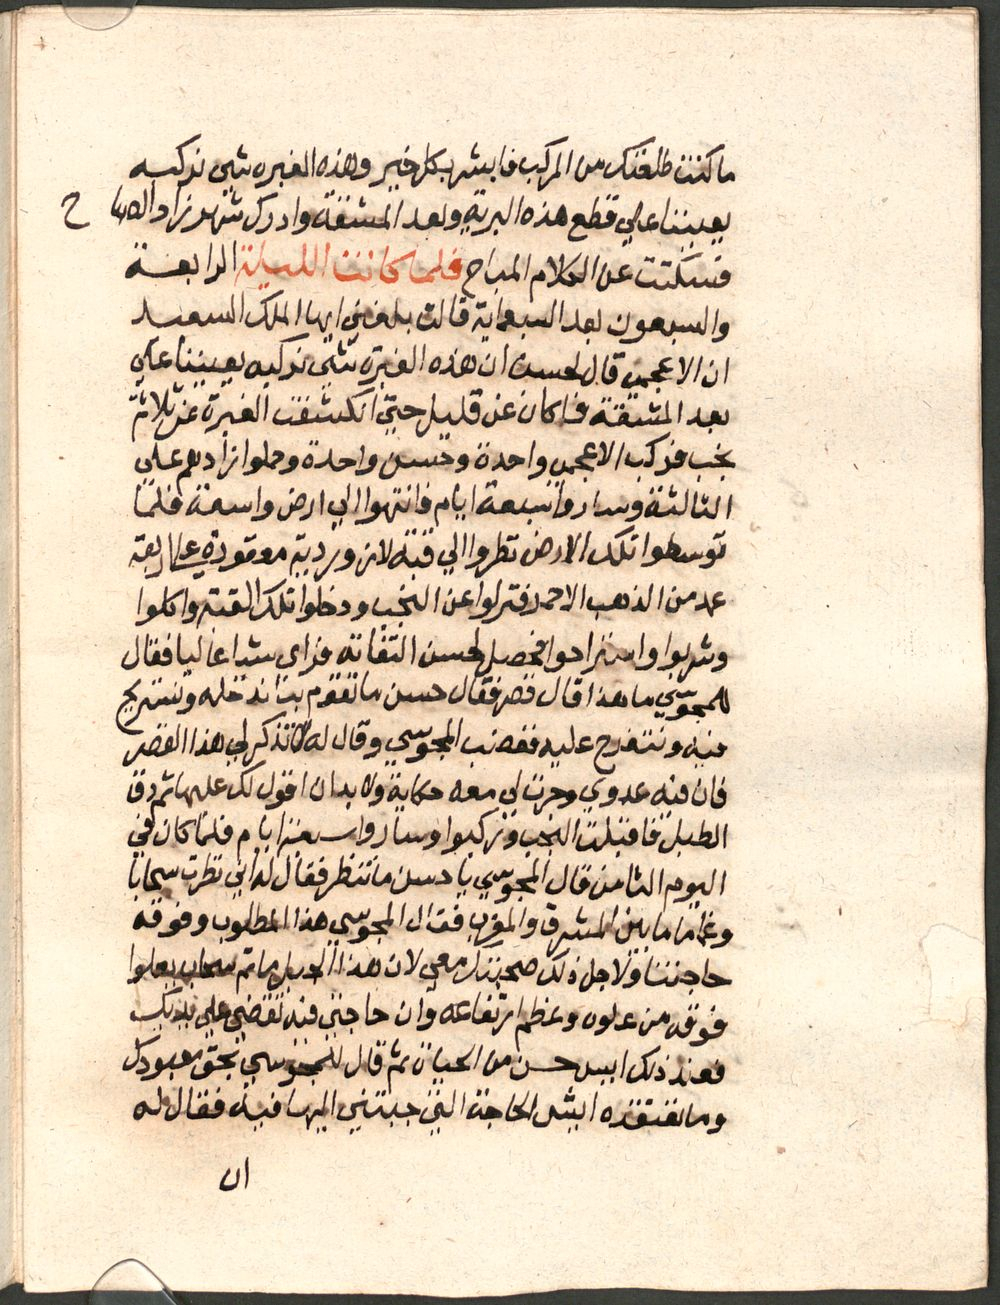 ما كنت طلعتك من المركب فابشر بكل خير وهذه الغبره شي نركبه
يعيننا علي قطع هذه البرية وبعد المشقة وادرك شهر زاد الصبا ح
فسكتت عن الكلام المباح فلما كانت الليلة الرابعة
والسبعون بعد السبعماية قالت بلغني ايها الملك السعيد
ان الاعجمي قال لحسن ان هذه الغبرة شي نركبه يعيننا علي
بعد المشقة فما كان عن قليل حتي انكشفت الغبرة عن ثلاثة
نجب فركب الاعجمي واحدة وحسن واحدة وحملوا زادهم علي
الثالثة وساروا سبعة ايام فانتهوا الي ارض واسعة فلما
توسطوا تلك الارض نظروا الي قبة لازوردية معقودة علي اربعة
عمد من الذهب الاحمر فنزلوا عن النجب ودخلوا تلك القبة واكلوا
وشربوا واستراحوا فحصل لحسن التفاتة فراي شيا عاليا فقال
للمجوسي ما هذا قال قصر فقال حسن ما تقوم بنا ندخله ونستريح
فيه ونتفرج عليه فغضب المجوسي وقال له لا تذكر لي هذا القصر
فان فيه عدوي وجرت لي معه حكاية ولا بد ان اقول لك عليها ثم دق
الطبل فاقبلت النجب فركبوا وساروا سبعة ايام فلما كان في
اليوم الثامن قال المجوسي يا حسن ما تنظر فقال له اني نظرت سحابا
وغماما ما بين المشرق والمغرب فقال المجوسي هذا المطلوب وفوقه
حاجتنا ولاجل ذلك صحبتك معي لان هذا الجبل ما تم سحاب يعلوا
فوقه من علوه وعظم ارتفاعه وان حاجتي فيه تقضي علي يديك
فعند ذلك ايس حسن من الحياة ثم قال للمجوسي بحق معبودك
وما تعتقده ايش الحاجة التي جبتني اليها فيه فقال له
ان